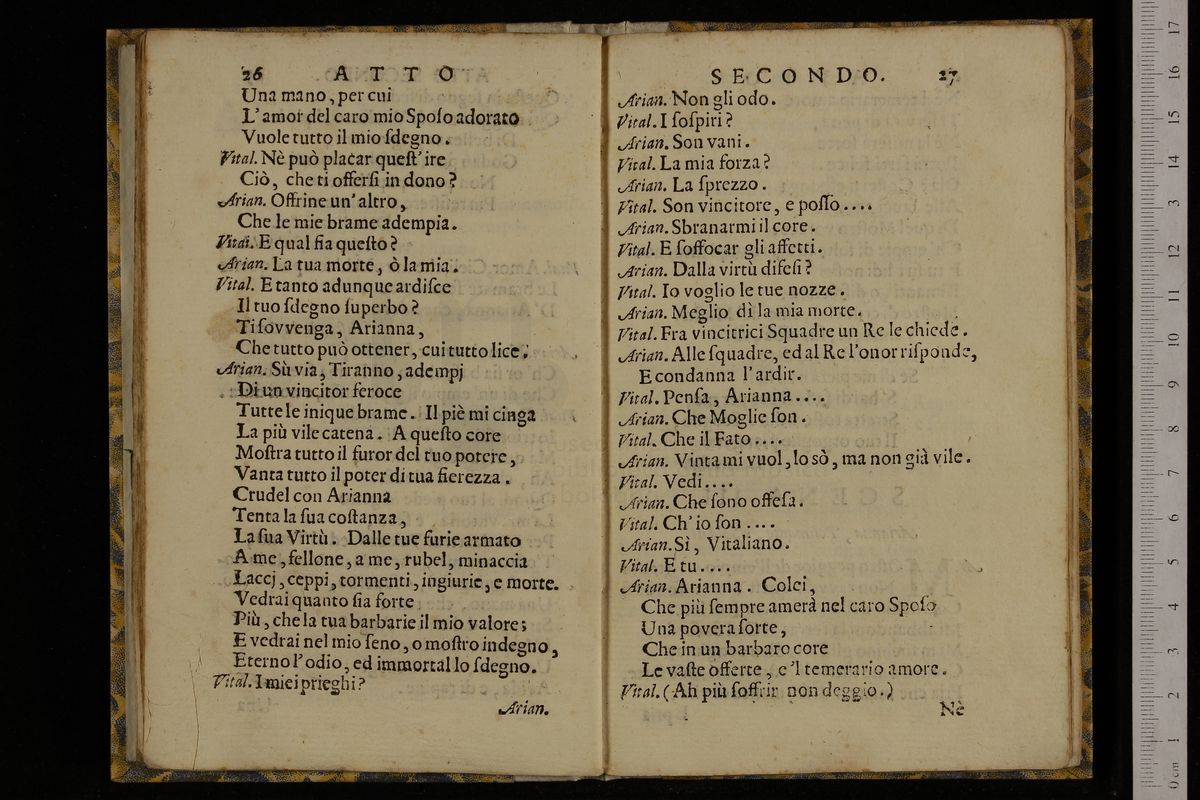 26 ATTO
Una mano, per cui
L'amor del caro mio Sposo adorato
Vuole tutto il mio sdegno.
Vital. Nè può placar quest'ire
Ciò, che ti offersi in dono?
Arian. Offrine un'altro,
Che le mie brame adempia.
Vital. E qual sia questo?
Arian. La tua morte, ò la mia.
Vital. E tanto adunque ardisce
Il tuo sdegno superbo?
Ti sovvenga, Arianna,
Che tutto può ottener, cui tutto lice.
Arian. Sù via, Tiranno, adempj
Di un vincitor feroce
Tutte le inique brame. Il piè mi cinga
La più vile catena. A questo core
Mostra tutto il furor del tuo potere,
Vanta tutto il poter di tua fierezza.
Crudel con Arianna
Tenta la sua costanza,
La sua Virtù. Dalle tue furie armato
A me, fellone, a me, rubel, minaccia
Laccj, ceppi, tormenti, ingiurie, e morte.
Vedrai quanto sia forte
Più, che la tua barbarie il mio valore;
E vedrai nel mio seno, o mostro indegno,
Eterno l'odio, ed immortal lo sdegno.
Vital. I miei prieghi?
Arian.
SECONDO. 27
Arian. Non gli odo.
Vital. I sospiri?
Arian. Son vani.
Vital. La mia forza?
Arian. La sprezzo.
Vital. Son vincitore, e posso....
Arian. Sbranarmi il core.
Vital. E soffocar gli affetti.
Arian. Dalla virtù difesi?
Vital. Io voglio le tue nozze.
Arian. Meglio dì la mia morte.
Vital. Fra vincitrici Squadre un Re le chiede.
Arian. Alle squadre, ed al Re l'onor risponde,
E condanna l'ardir.
Vital. Pensa, Arianna....
Arian. Che Moglie son.
Vital. Che il Fato....
Arian. Vinta mi vuol, lo sò, ma non già vile.
Vital. Vedi....
Arian. Che sono offesa.
Vital. Ch'io son....
Arian. Sì, Vitaliano.
Vital. E tu....
Arian. Arianna. Colei,
Che più sempre amerà nel caro Sposo
Una povera sorte,
Che in un barbaro core
Le vaste offerte, e'l temerario amore.
Vital. (Ah più soffrir non deggio.)
Nè
0 cm 1 2 3 4 5 6 7 8 9 10 11 12 13 14 15 16 17